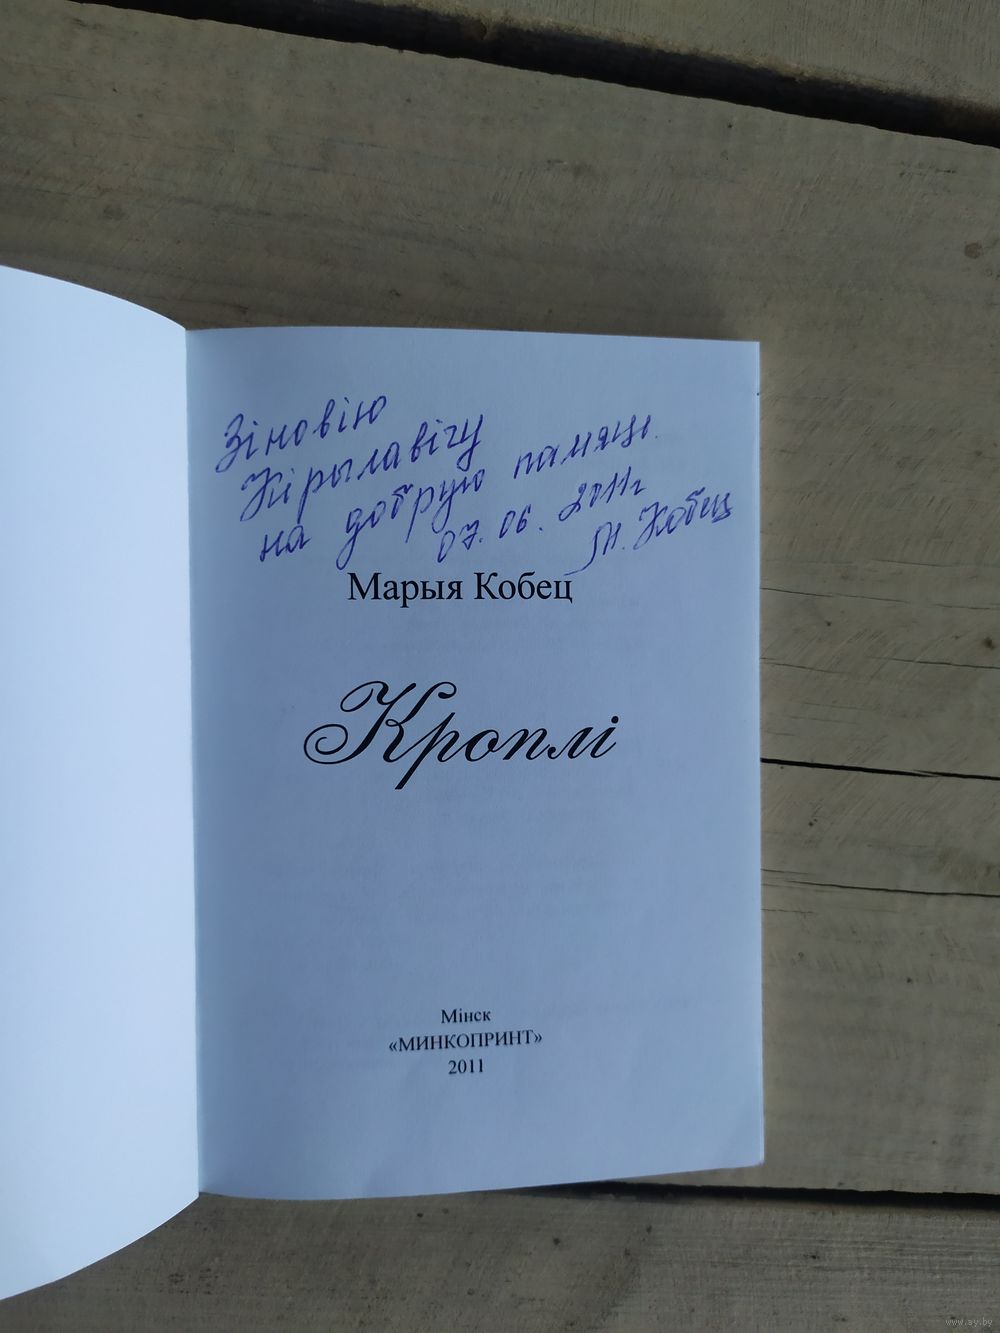 Зіновію
Кірылавічу
на добрую памяць.
07.06.2011г
М. Кобец
Марыя Кобец
Кроплі
Мінск
«МИНКОПРИНТ»
2011
www.ay.by